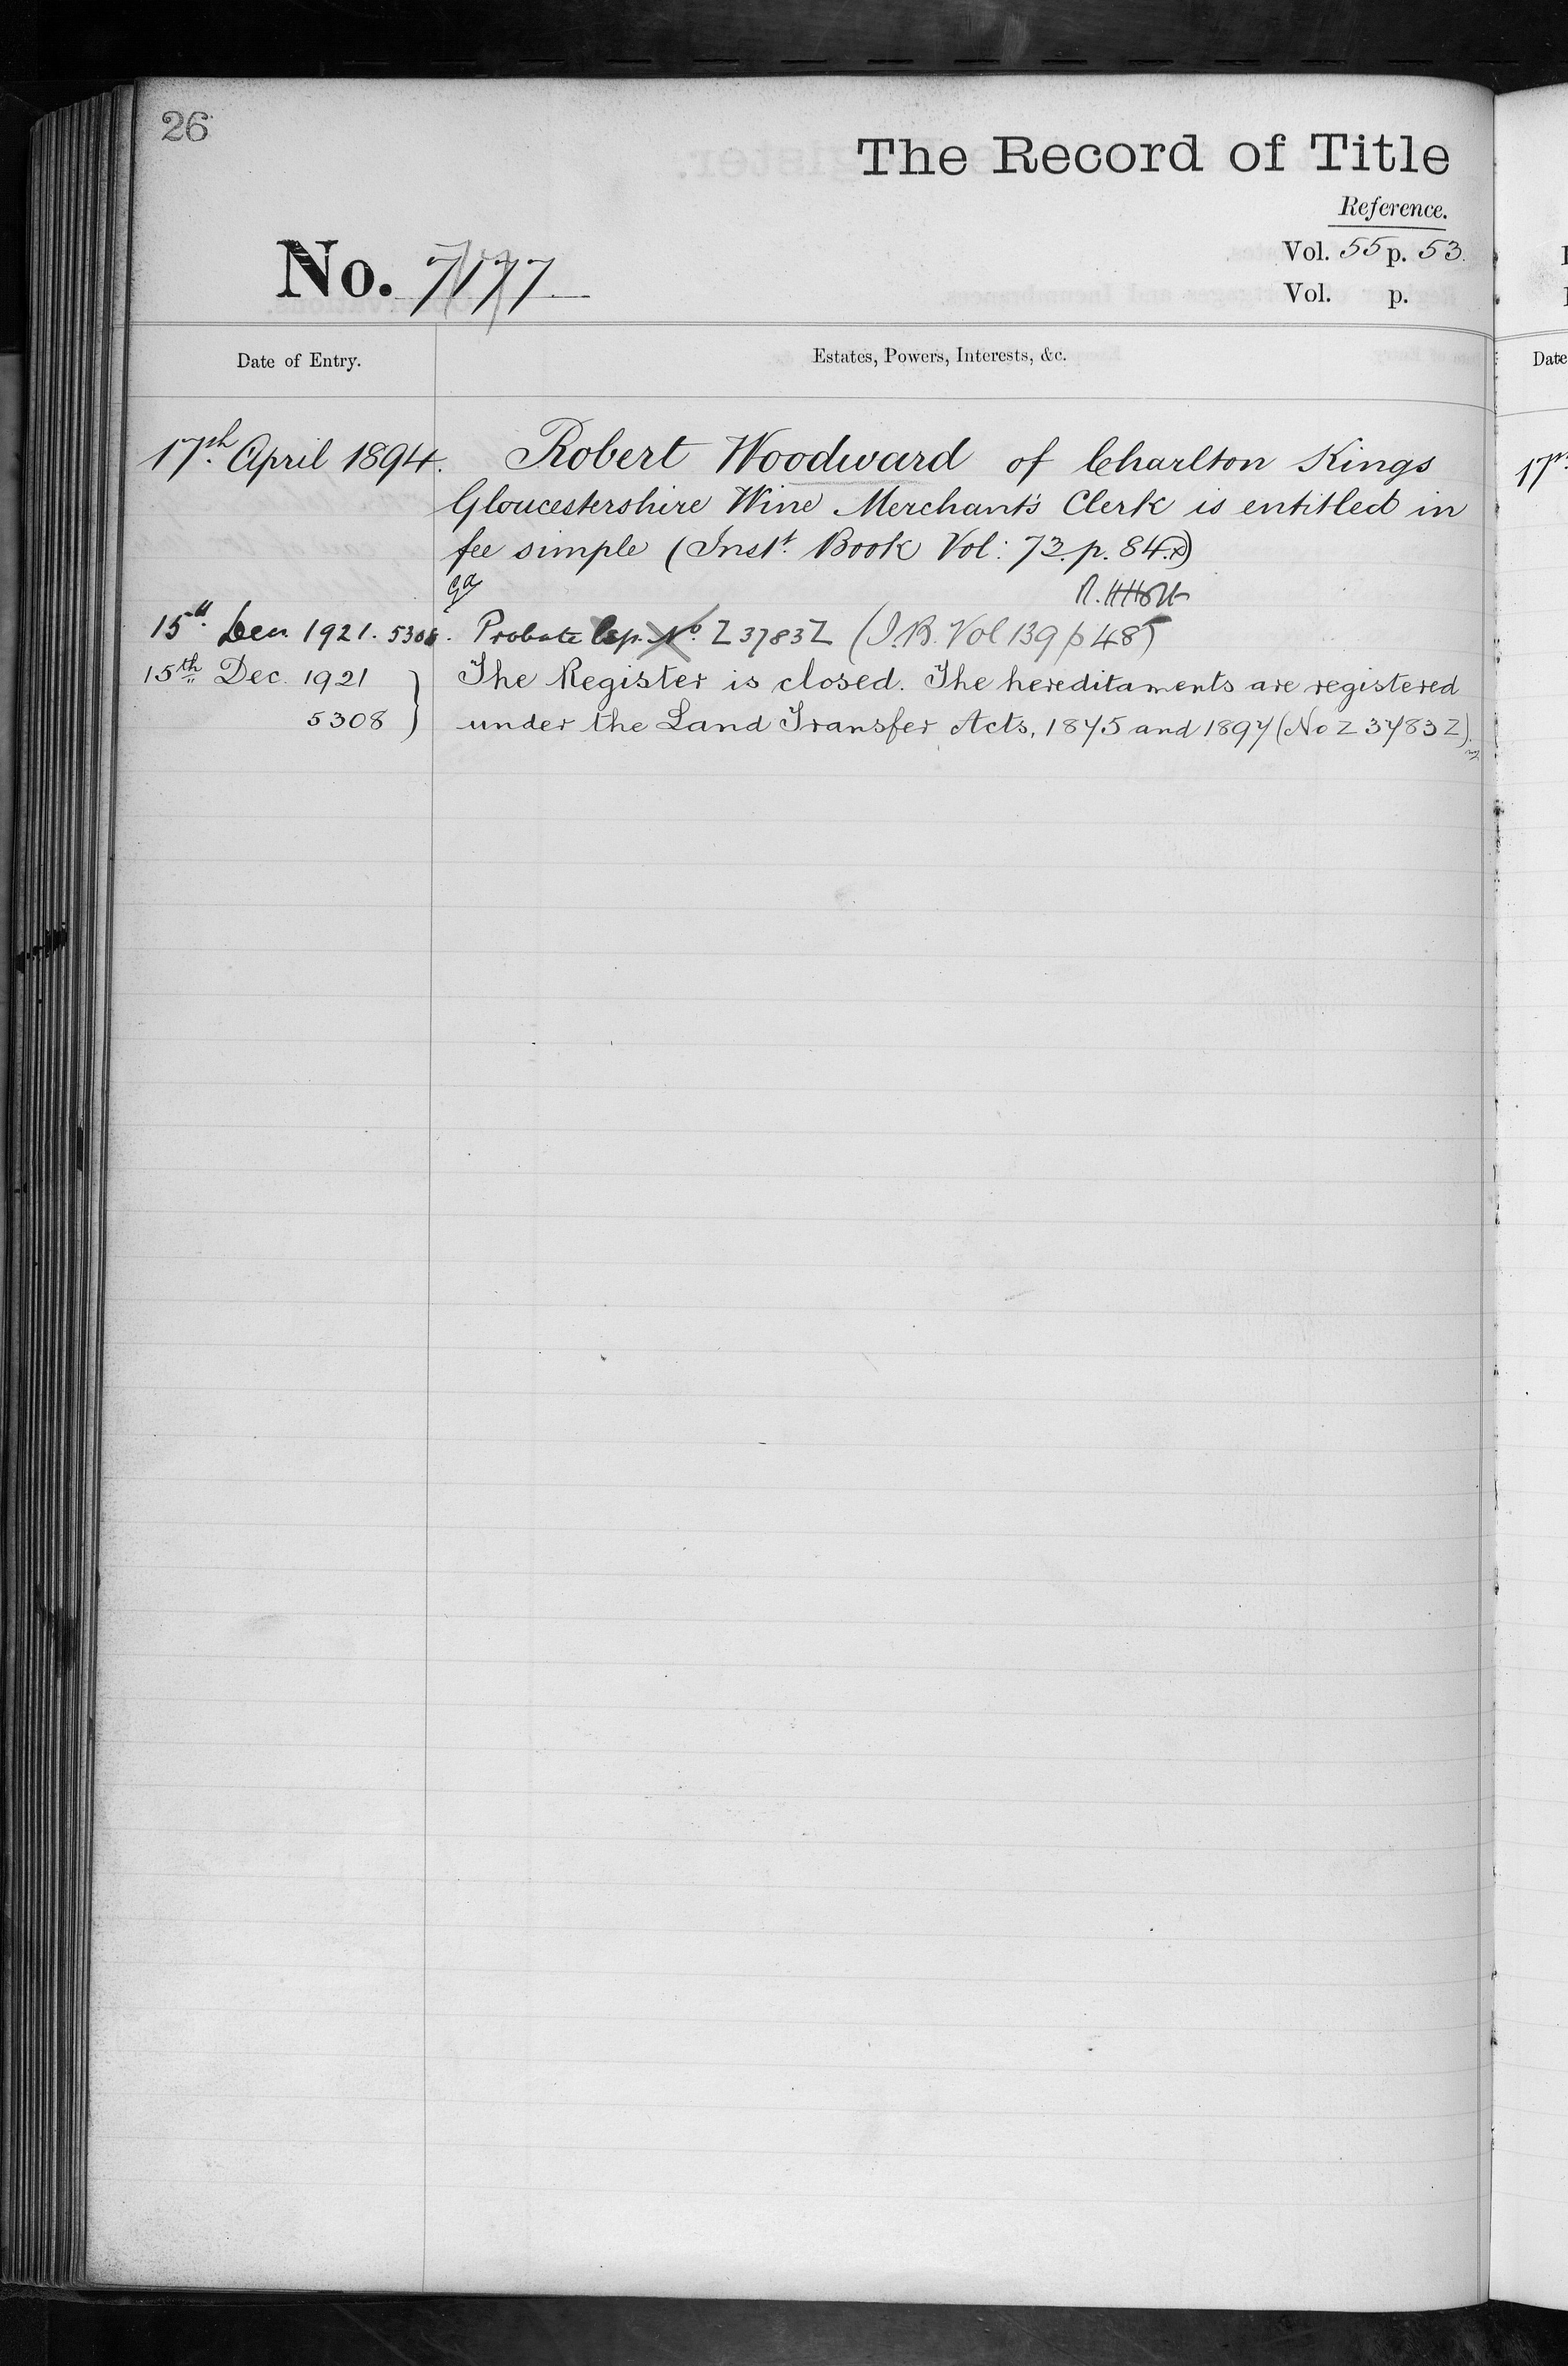 26
The Record of Title
Reference.
No. 7177
Vol. 55 p. 53.
Vol. p.
Date of Entry.
Estates, Powers, Interests, &c.
17th April 1894. Robert Woodward of Charlton Kings
Gloucestershire Wine Merchant's Clerk is entitled in
fee simple (Inst. Book Vol: 73. p. 84.)
15th Dec. 1921. Probate No Z3783Z (I.B. Vol 139 p 485)
15th Dec. 1921 The Register is closed. The hereditaments are registered
5308 under the Land Transfer Acts, 1875 and 1897 (No Z 3783 Z).
Date
17th